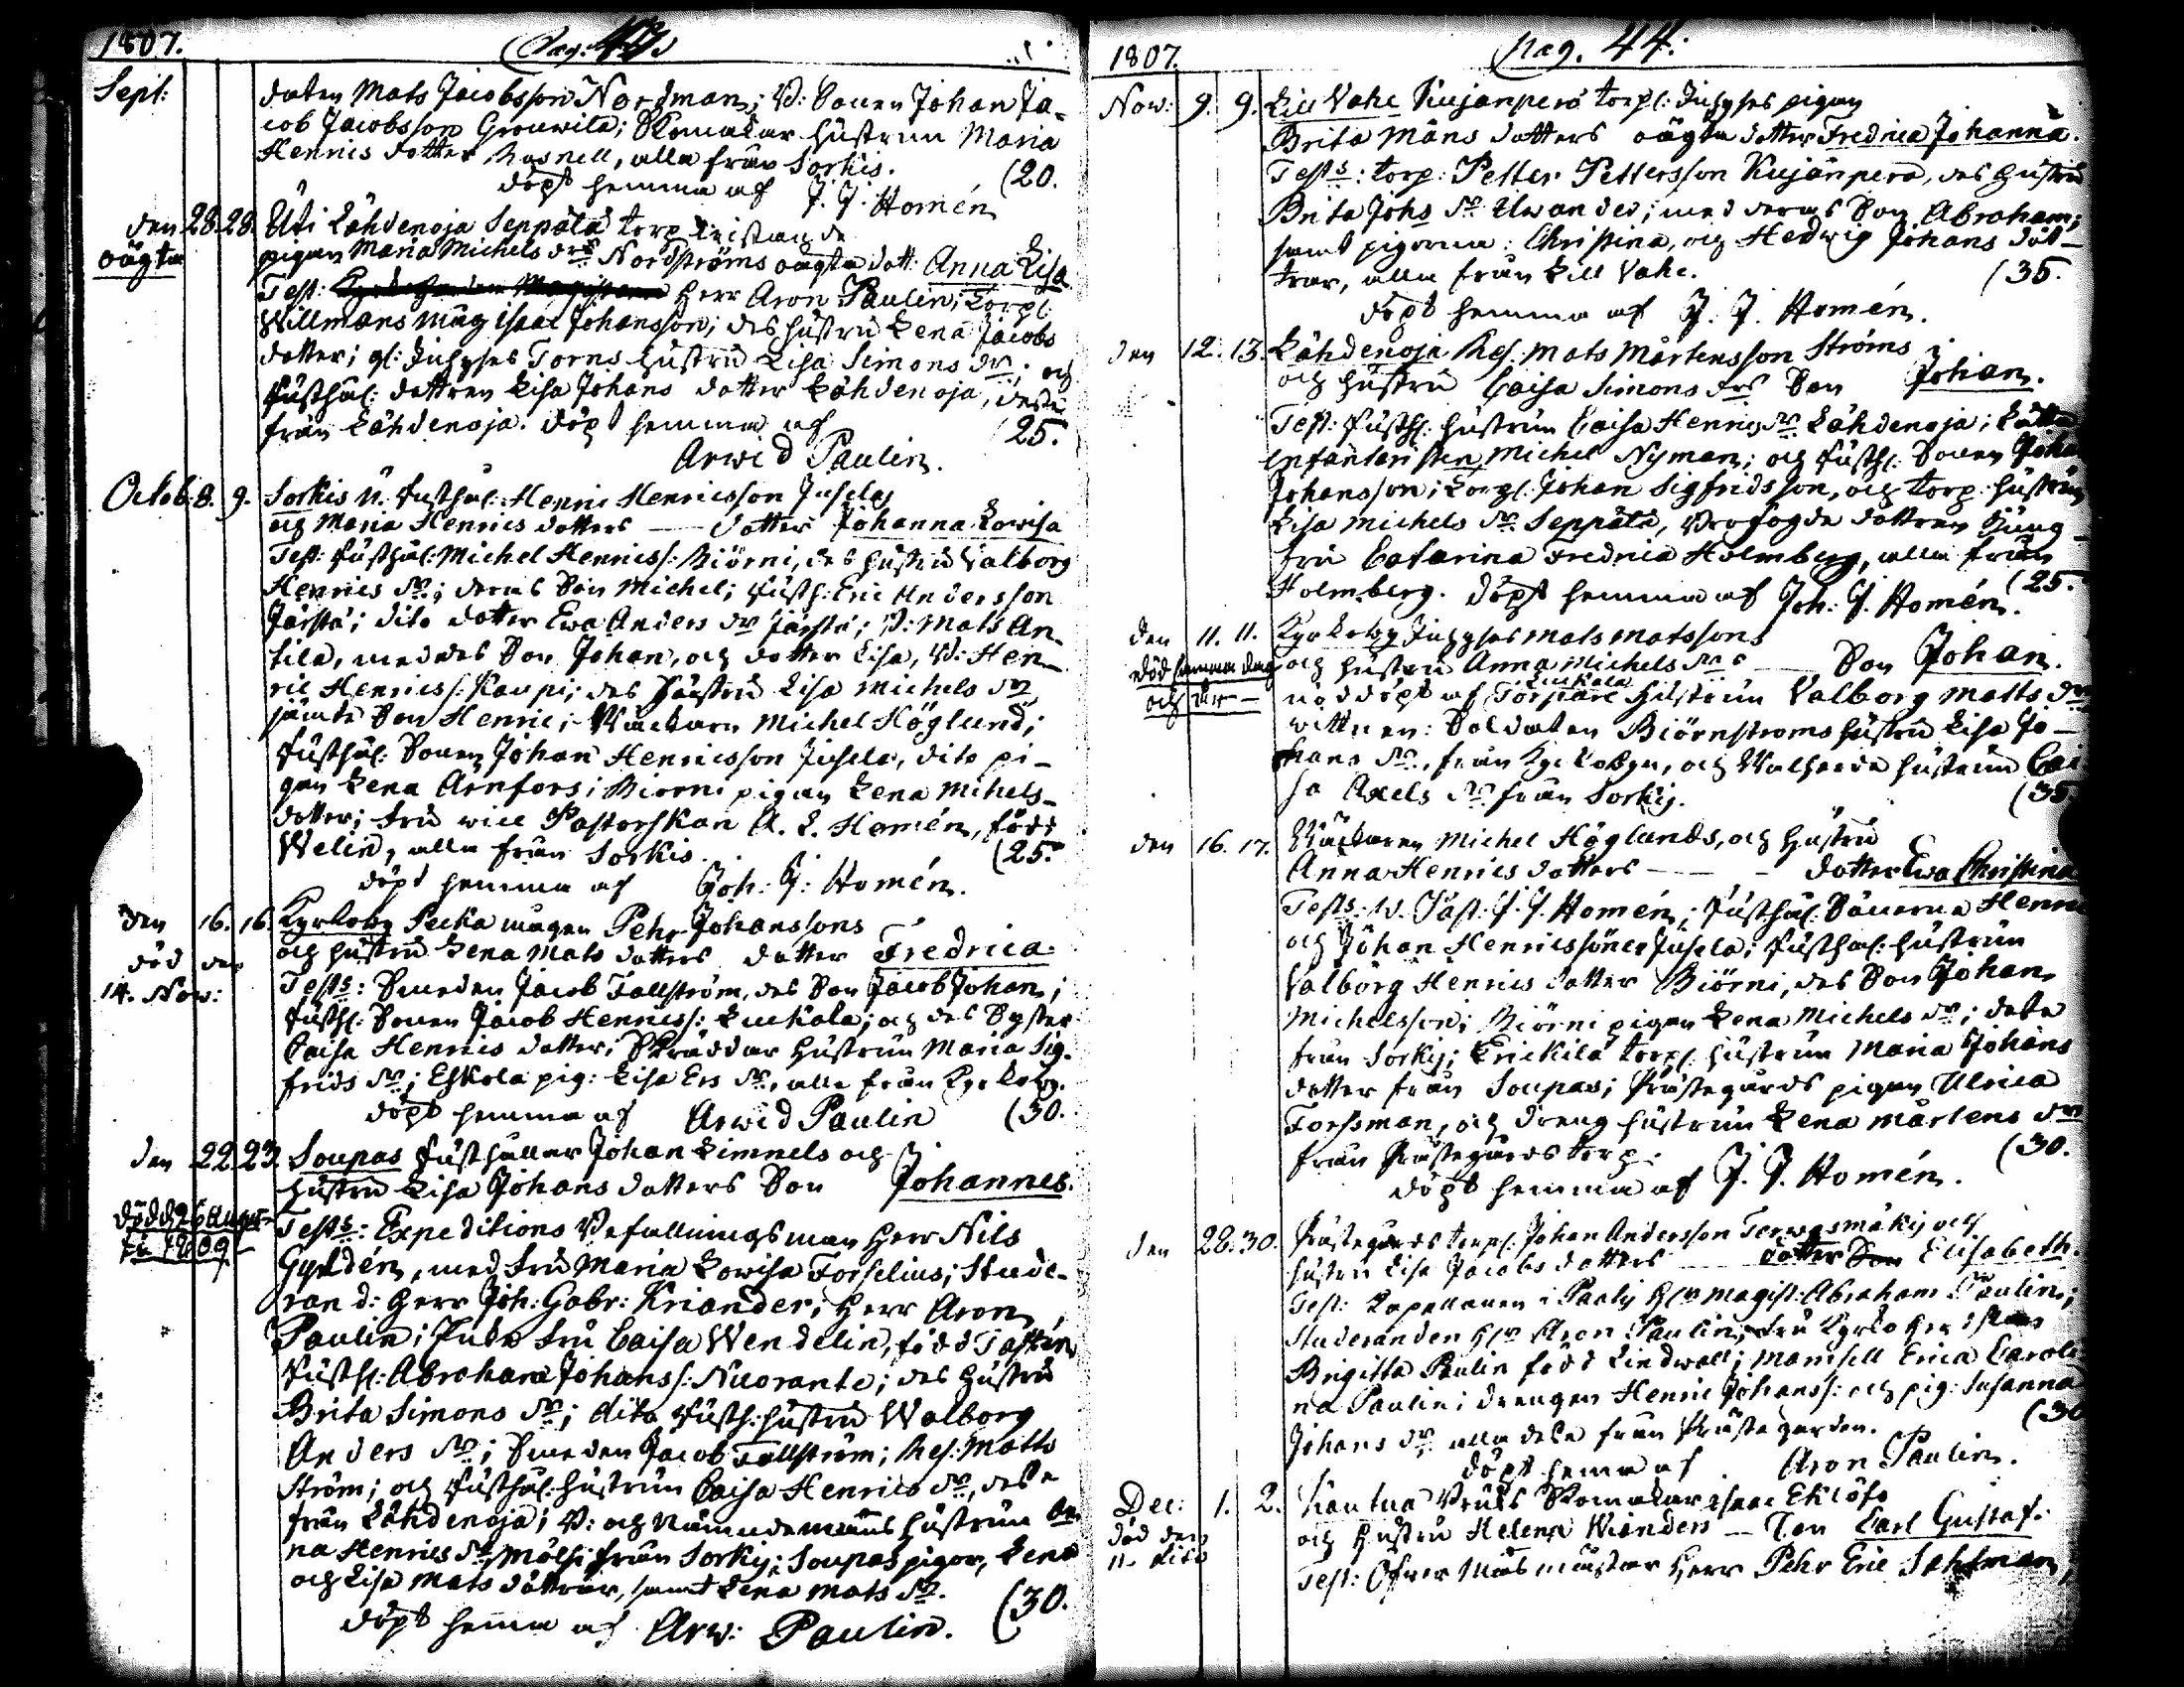 1807. Pag: 43.
Sept: daten Mats Jacobsson Nordman; B: Sonen Johan Ja-
cob Jacobsson Grouwila; Skomakar hustrun Maria
Henrics dotter Rosnell, alla från Sorkis.
döpt hemma af J. J. Homén (20.
den 28. 28. Uti Lähdenoja Seppälä torp
oägta pigan Maria Michels drs Nordströms oägta dott: Anna Lisa
Test: Herr Aron Paulin; Torp:
Willmans måg Isaac Johansson; des hustru Lena Jacobs
dotter; gl: Inhyses Torns hustru Lisa Simons dr; och
Rusthål: dottren Lisa Johans dotter Lähdenoja, desse
från Lähdenoja. döpt hemma af (25.
Arwid Paulin.
Octob: 8. 9. Sorkis n. Rusthål: Henric Henricsson Jusela
och Maria Henrics dotters — dotter Johanna Lowisa
Test: Rusthål: Michel Henricss: Biörni, des hustru Valborg
Henrics dr; deras Son Michel; Rusth: Eric Andersson
Järstä; dito dotter Ewa Anders dr Järstä; B: Mats An-
tila, med des Son Johan, och dotter Lisa, B: Hen-
ric Henricss: Kaupi; des hustru Lisa Michels dr
jämte Son Henric; Michel Höglund;
Rusthål: Sonen Johan Henricsson Jusela, dito pi-
gan Lena Arnfors; Biörni pigan Lena Michels-
dotter; fru vice Pastorskan A. L. Homén, född
Welin, alla från Sorkis. (25.
döpt hemma af Joh: J: Homén.
den 16. 16. Kyrkoby Pecka mågen Pehr Johanssons
död den och hustru Lena Mats dotters dotter Fredrica
14. Nov: Tests: Smeden Jacob Fallström, des Son Jacob Johan;
Rusth: Sonen Jacob Henricss: Luckala; och des Syster
Caisa Henrics dotter; Skräddar hustrun Maria Sig-
frids dr; Eskola pig: Lisa Ers dr, alla från Kyrkoby.
döpt hemma af Arwid Paulin (30.
den 22. 23. Soupas Rusthållar Johan Limnels och
hustru Lisa Johans dotters Son Johannes.
död d. 26 August Tests: Expeditions Befallningsman Herr Nils
1809 Gyldén, med fru Maria Lowisa Forselius; Stude-
rand: Herr Joh: Gabr: Kriander; Herr Aron
Paulin; fru Caisa Wendelin, född
Rusth: Abraham Johanss: Nuorante; des hustru
Brita Simons dr; dito Rusth: hustru Walborg
Anders dr; Smeden Jacob Fallström; Res: Matts
Ström; och Rusthål: hustrun Caisa Henrics dr, desse
från Lähdenoja; B: och Nämndemans hustrun An-
na Henrics dr Mölsi från Sorkis; Soupas pigor, Lena
och Lisa Mats döttrar, samt Lena Mats dr.
döpt hemma af Arw: Paulin. (30.
1807. Pag. 44.
Nov: 9. 9. Lill Vahe Kujanperä torp: Inhyses pigan
Brita Måns dotters oägta dotter Fredrica Johanna.
Tests: torp: Petter Pettersson Kujanperä, des hustru
Brita Johs dr Uwander; med deras Son Abraham;
samt pigorna: Christina, och Hedwig Johans döt-
trar, alla från Lill Vahe. (35.
döpt hemma af J. J. Homén.
den 12. 13. Lähdenoja Res. Mats Mårtensson Ströms
och hustru Caisa Simons drs Son Johan.
Test: Rusth: hustrun Caisa Henrics dr Lähdenoja; Lätta
Infanteristen Michel Nyman; och Rusth: Sonen Joha
Johansson; torp: Johan Sigfridsson, och torp: hustrun
Lisa Michels dr Seppälä, Brofogde dottren Jung-
fru Catarina Fredrica Holmberg, alla från
Holmberg. döpt hemma af Joh: J. Homén. (25.
den 11. 11. Kyrkoby Inhyses Mats Matssons
död samma dag och hustru Anna Michels drs — Son Johan.
nöddöpt af Luckala Torpare hustrun Valborg Matts dr
wittnen: Soldaten Biörnströms hustru Lisa Jo-
hans dr, från Kyrkobyn, och hustrun Cai
sa Axels dr från Sorkis. (35
den 16. 17. Michel Höglunds, och hustru
Anna Henrics dotters — dotter Ewa Christina
Tests: v. Past: J. J. Homén; Rusthål: Sönerna Henric
och Johan Henricssöner Jusela; Rusthål: hustrun
Valborg Henrics dotter Biörni, des Son Johan
Michelsson; Biörni pigan Lena Michels dr; desse
från Sorkis; Erickilä torp: hustrun Maria Johans
dotter från Soupas; Prästegårds pigan Ulrica
Forssman, och dreng hustrun Lena Mårtens dr
från Prästegårds torp. (30.
döpt hemma af J. J. Homén.
den 28. 30. Prästegårds torp: Johan Andersson Terwasmäki och
hustru Lisa Jacobs dotters — dotter Son Elisabeth.
Test: Kapellanen i Pargby Hr Magist: Abraham Paulin;
Studeranden Hr Aron Paulin; fru Kyrkoherdskan
Brigitta Paulin född Lindwall; Mamsell Erica Caroli
na Paulin; drengen Henric Johanss: och pig: Susanna
Johans dr alla desse från Prästegården. (30
döpt hema af Aron Paulin.
Dec: 1. 2. Kautua Bruks Skomakar Isaac Eklöfs
död den och hustru Helena Wianders — Son Carl Gustaf.
11. dito Test: Öfver Masmästar Herr Pehr Eric Sahlman,